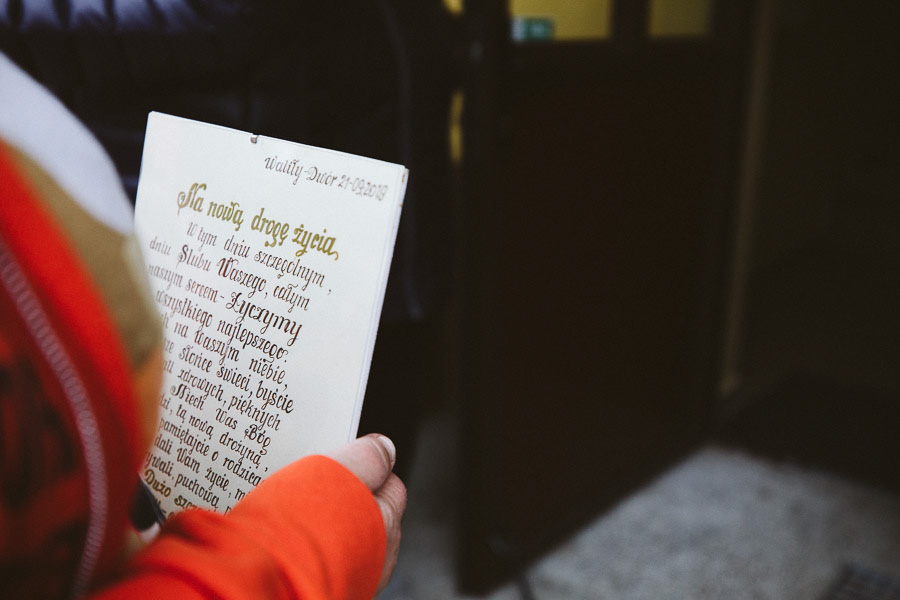 Waliły-Dwór 21-09.2019
Na nową drogę życia,
W tym dniu szczególnym,
dniu Ślubu Waszego, całym
naszym sercem - Życzymy
wszystkiego najlepszego.
na Waszym niebie,
słońce świeci, byście
zdrowych, pięknych
Niech Was Bóg
tą nową drożyną,
pamiętajcie o rodzica
dali Wam życie,
puchową
Dużo